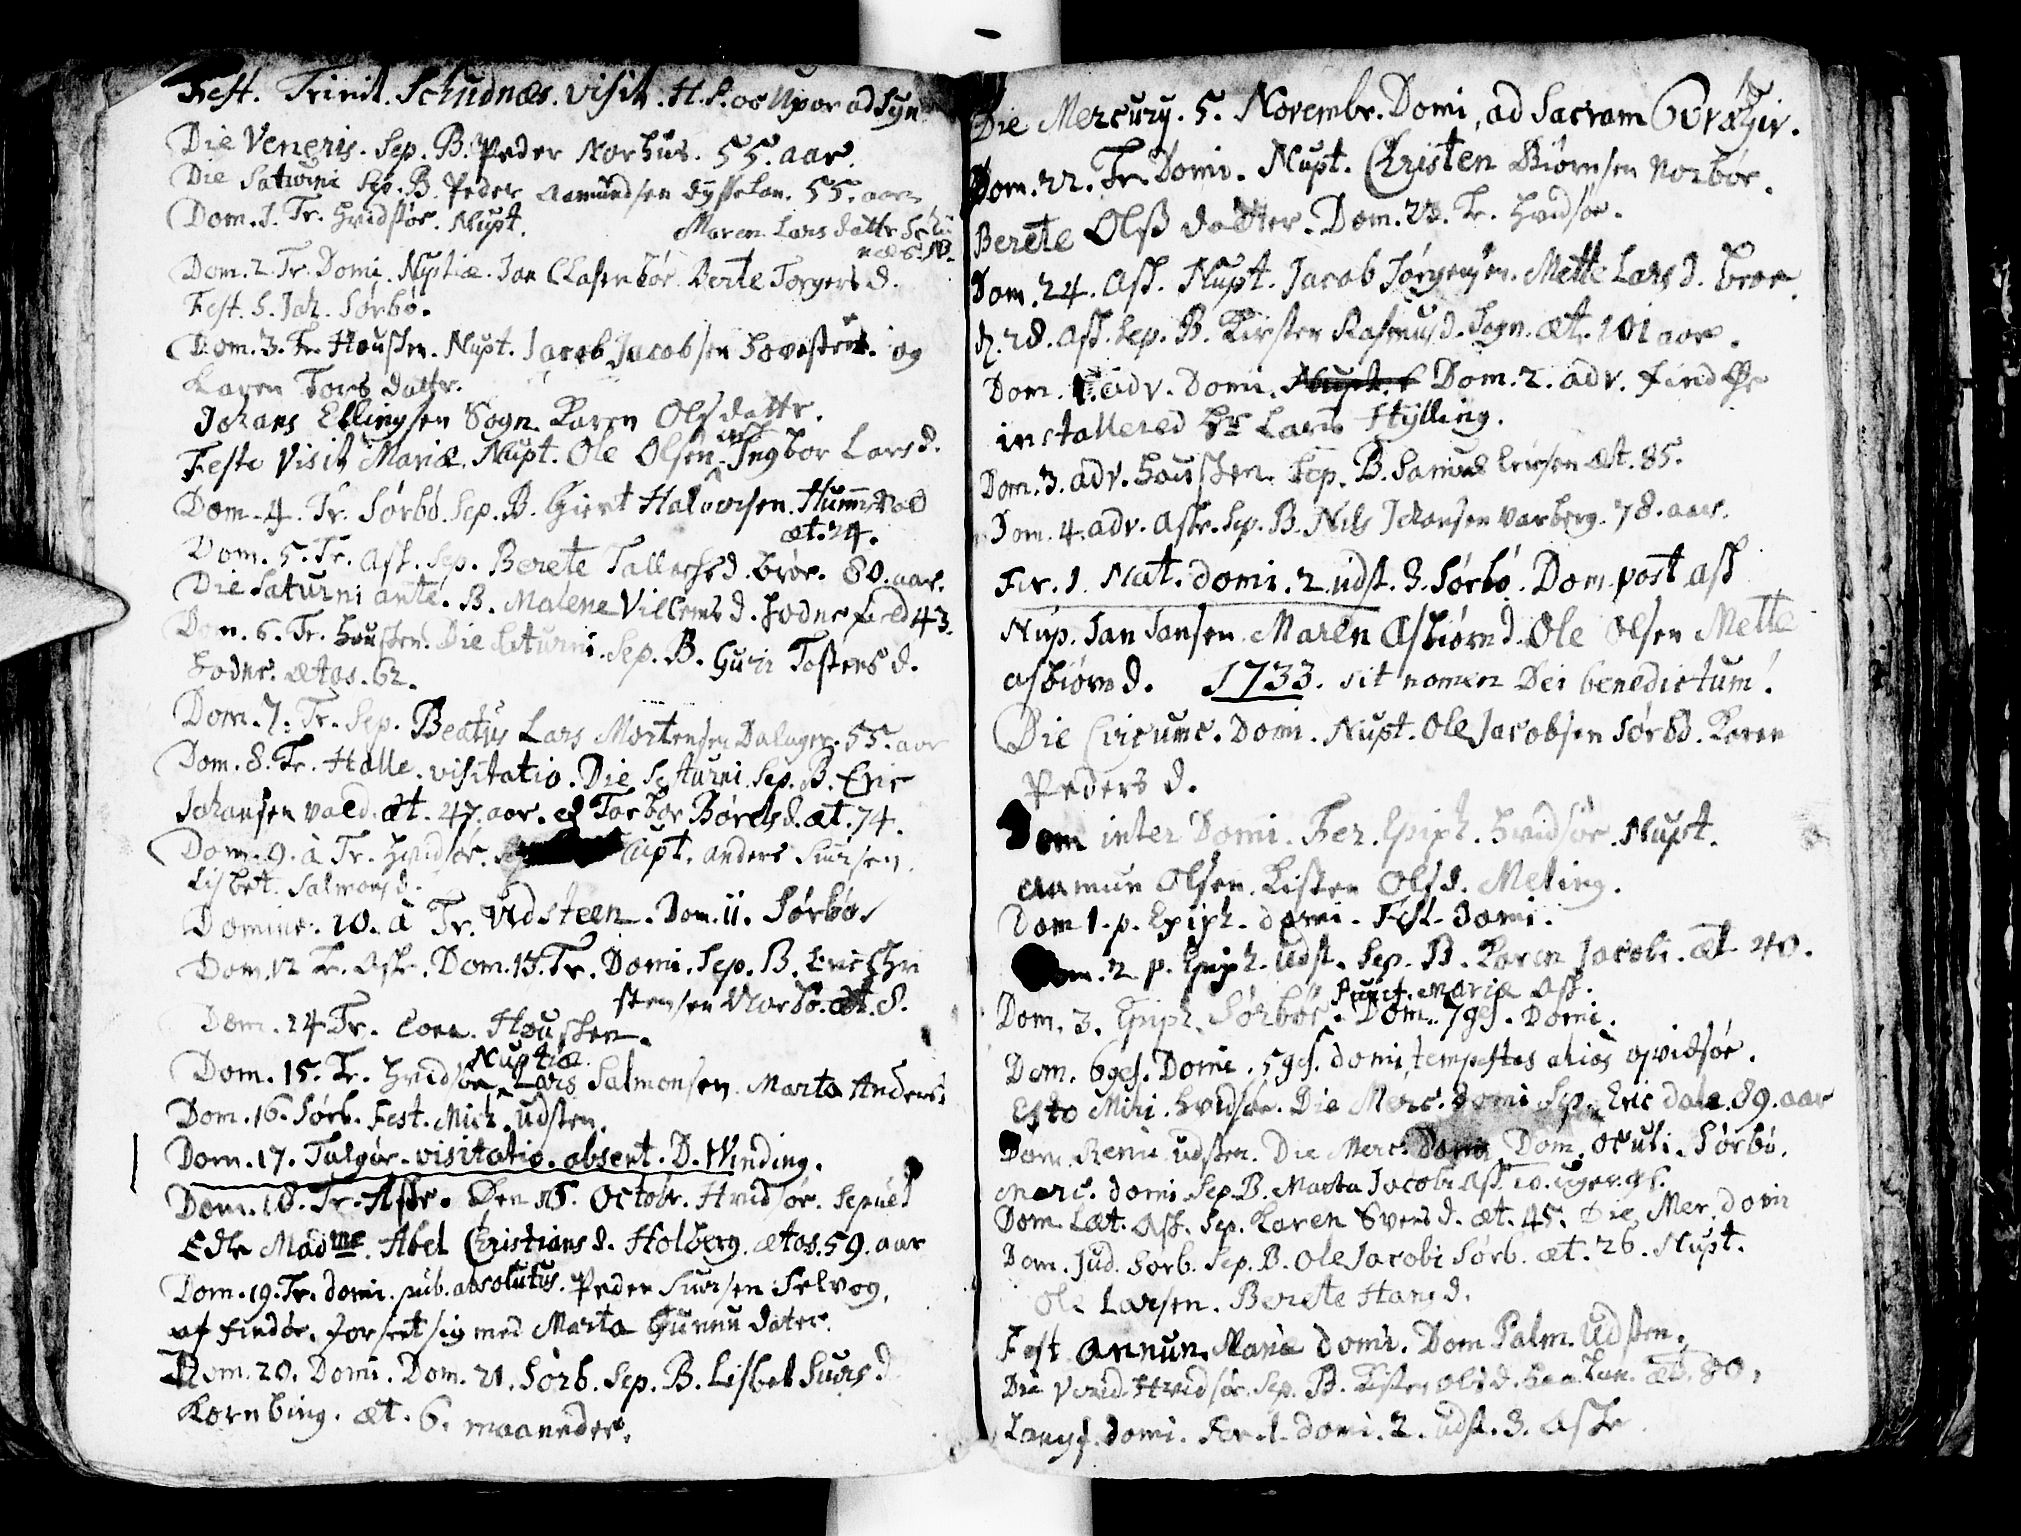 Fest. Trinit. Schudnæs. visit. H. P. oc Upor ad Syn
Die Veneris. Sep. B. Peder Norhus. 55. aar.
Die Saturni Sep. B. Peder Aamundsen 55. aar
Dom. 1. Tr. Hvidsør. Nupt. Maren Lars dattr Schu
næs. N.
Dom. 2. Tr. Domi. Nuptiæ. Jan Berte Torgers d.
Fest. S. Joh. Sørbø.
Dom. 3. Tr. Housken. Nupt. Jacob Jacobsen og
Karen Tors dattr.
Johans Ellingsen Sogn. Karen Olsdattr.
Festo Visit Mariæ. Nupt. Ole Olsen Ask Ingbor Lars d.
Dom. 4. Tr. Sørbø. Sep. B. Giert Halvorsen.
æt. 24.
Dom. 5. Tr. Ask. Sep. Berete Tallachsd. Broe. 80. aar.
Die Saturni ante. B. Malene Villems d. Hodne 43.
Dom. 6. Tr. Housken. Die Saturni. Sep. B. Guri Tosters d.
Hodne. ætas. 62.
Dom. 7. Tr. Sep. Beatus Lars Mortensen Dalager. 55. aar
Dom. 8. Tr. Halle. visitatio. Die Saturni. Sep. B. Eric
Johansen Vaed. æt. 47. aar. et Torbor Børelsd. æt. 74.
Dom. 9. à Tr. Hvidsør. Nupt. Anders Siursen
Lisbet Salmonsd.
Domine. 10. à Tr. Udsteen. Dom. 11. Sørbø.
Dom. 12 Tr. Ask. Dom. 13. Tr. Domi. Sep. B. Eric Chri
stensen Norbø. æt. 8.
Dom. 14 Tr. Housken.
Nuptiæ
Dom. 15. Tr. Hvidsøe Lars Salmonsen Marta Anders:
Dom. 16. Sørb. Fest. Mich. udsten.
Dom. 17. Talgør. visitatio. absent. D. Winding.
Dom. 18. Tr. Aske. Den 15. Octobr. Hvidsør. Sepult
Edle Madme. Abel Christians d. Holberg. ætas. 59. aar
Dom. 19. Tr. domi. pub. absolutus. Peder Siursen Selvog.
af Findøe. forseet sig med Marta Gunnu dater.
Dom. 20. Domi. Dom. 21. Sørb. Sep. B. Lisbet Siurs d
Kornbing. æt. 6. maaneder.
Die Mercury. 5. Novembr. Domi, ad Sacram
Dom. 22. Tr. Domi. Nupt. Christen Biørnsen Norbøe.
Berete Olss datter. Dom. 23. Tr. Hvidsøe.
Dom. 24. Ask. Nupt. Jacob Jørgensen. Mette Lars d. Broe.
28. Ask. Sep. B. Kirsten Rasmusd. Sogn. æt. 101 aar.
Dom. 1. adv. Domi. Dom. 2. adv. Findøe
installered Hr Laris Hylling.
Dom. 3. adv. Housken. Sep. B. Samuel Ericsen æt. 85.
Dom. 4. adv. Aske. Sep. B. Nils Johansen Varberg. 78. aar.
Fer. 1. Nat. domi. 2. udst. 3. Sørbø. Dom. post Ask
Nup. Jan Jansen Maren Asbiørnd. Ole Olsen Mette
Asbiørnd. 1733. sit nomen Dei benedictum!
Die Circumc. Domi. Nupt. Ole Jacobsen Sørbø. Karen
Peders d.
Dom inter Domi. Fer. Epiph. Hvidsør. Nupt.
Aamun Olsen. Kisten Olsd. Meling.
Dom 1. p. Epiph. domi. Fest. Domi.
Dom. 2 p. Epiph. Udst. Sep. B. Karen Jacobi. æt 40.
Purif. Mariæ Ask.
Dom. 3. Epiph. Sørbøe. Dom. 7ges. Domi.
Dom. 6ges. Domi. 5ges. domi, tempestas alias Hvidsøe.
Esto Mihi. Hvidsøe. Die Merc. domi Sep. Eric dale. 89. aar
Dom. Remi. udsten. Die Merc. Domi Dom. Oculi. Sørbø.
Merc. domi. Sep. B. Marta Jacobi Ask 10. uger gl.
Dom. Læt. Ask. Sep. Karen Svens d. æt. 45. Die Mer. domi
Dom. Jud. Sørb. Sep. B. Ole Jacobi Sørb. æt. 26. Nupt.
Ole Larsen. Berete Hans d.
Fest. Annun. Mariæ domi. Dom Palm. Udsten.
Die Virid. Hvidsør. Sep. B. Kisten Olsd. æt. 80.
Langf. domi. Fer. 1. domi. 2. udst. 3. Aske